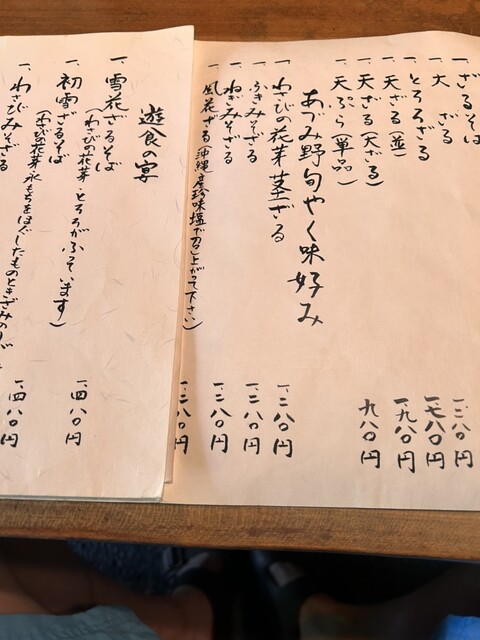 一、ざるそば
一、大ざる
一、とろろざる
一、天ざる(並) 一、七八〇円
一、天ざる(天ざる) 一、九八〇円
一、天ぷら(単品) 九八〇円
あづみ野旬やく味好み
一、わさびの花芽茎ざる 一、二八〇円
一、ふきみそざる 一、二八〇円
一、ねぎみそざる 一、二八〇円
一、風花ざる(沖縄産珍味塩で召し上がって下さい) 一、二八〇円
遊食の宴
一、雪花ざるそば
(わさびの花芽・とろろがふぞいます) 一、四八〇円
一、初雪ざるそば
(わさび花芽氷もちをほぐしたものときざみのり 一、四八〇円
一、わさびみそざる